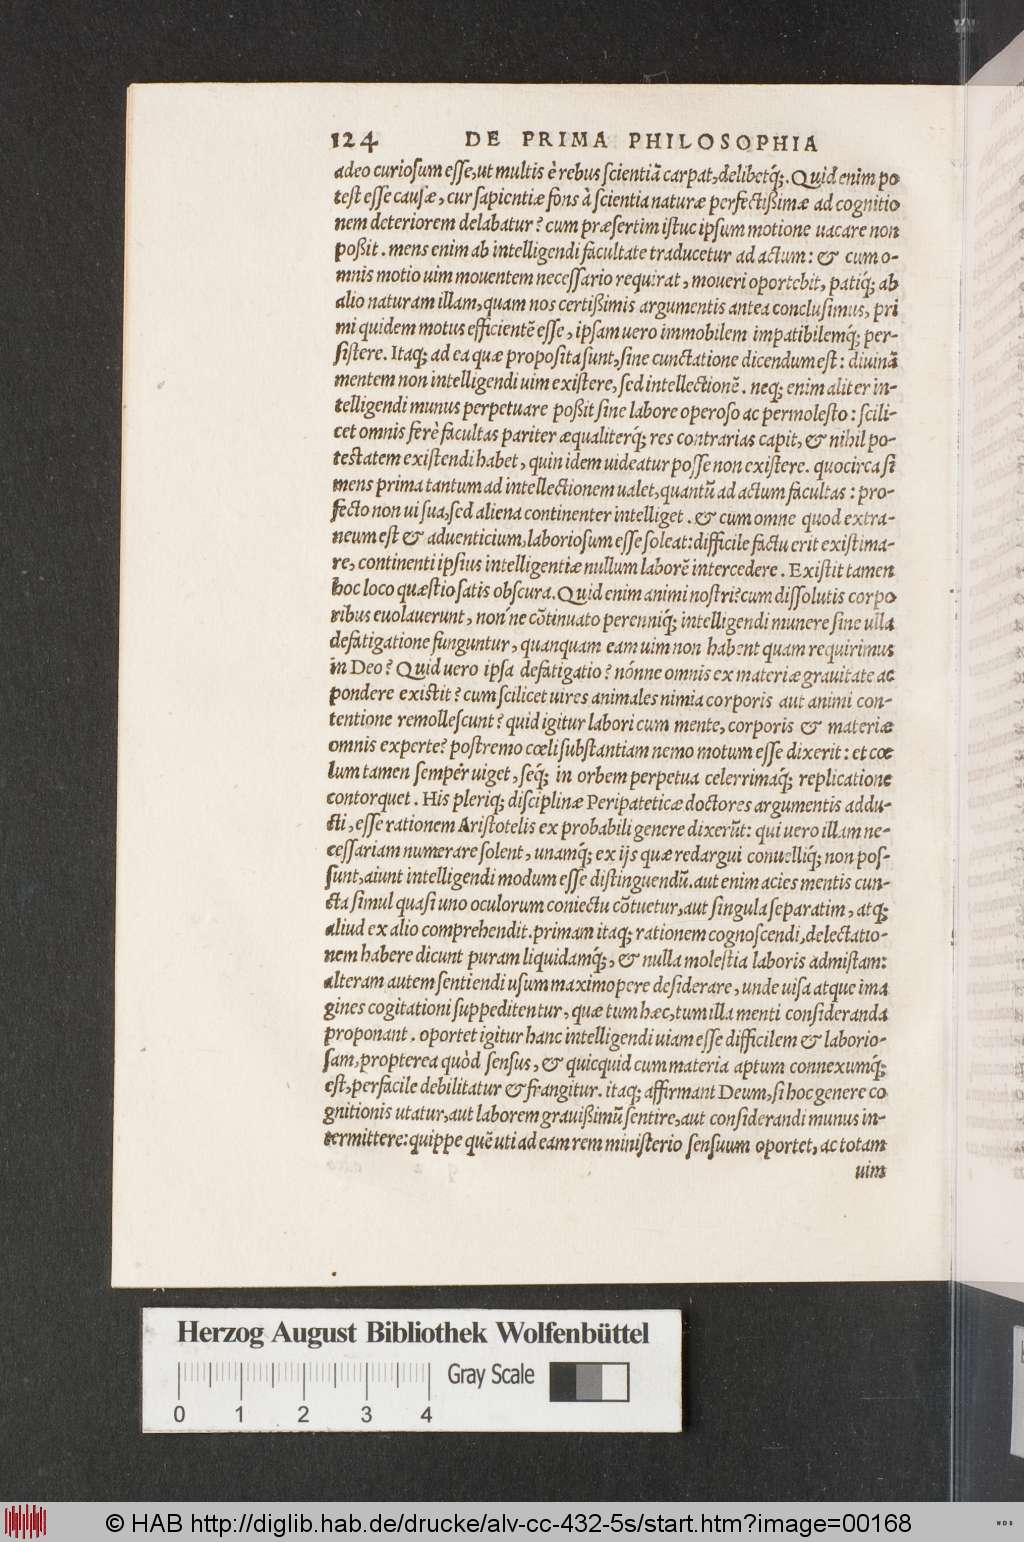 124 DE PRIMA PHILOSOPHIA
adeo curiosum esse, ut multis è rebus scientiã carpat, delibetq́;. Quid enim po
test esse causæ, cur sapientiæ fons à scientia naturæ perfectißimæ ad cognitio
nem deteriorem delabatur? cum præsertim istuc ipsum motione uacare non
poßit. mens enim ab intelligendi facultate traducetur ad actum: & cum o-
mnis motio uim mouentem necessario requirat, moueri oportebit, patiq́; ab
alio naturam illam, quam nos certißimis argumentis antea conclusimus, pri
mi quidem motus efficientẽ esse, ipsam uero immobilem impatibilemq́; per-
sistere. Itaq; ad ea quæ proposita sunt, sine cunctatione dicendum est: diuinã
mentem non intelligendi uim existere, sed intellectionẽ. neq; enim aliter in-
telligendi munus perpetuare poßit sine labore operoso ac permolesto: scili-
cet omnis ferè facultas pariter æqualiterq́; res contrarias capit, & nihil po-
testatem existendi habet, quin idem uideatur posse non existere. quocirca si
mens prima tantum ad intellectionem ualet, quantũ ad actum facultas: pro-
fecto non ui sua, sed aliena continenter intelliget. & cum omne quod extra-
neum est & aduenticium, laboriosum esse soleat: difficile factu erit existima-
re, continenti ipsius intelligentiæ nullum laborẽ intercedere. Existit tamen
hoc loco quæstio satis obscura. Quid enim animi nostri? cum dissolutis corpo
ribus euolauerunt, non'ne cõtinuato perenniq́; intelligendi munere sine ulla
defatigatione funguntur, quanquam eam uim non habent quam requirimus
in Deo? Quid uero ipsa defatigatio? nónne omnis ex materiæ grauitate ac
pondere existit? cum scilicet uires animales nimia corporis aut animi con-
tentione remollescunt? quid igitur labori cum mente, corporis & materiæ
omnis experte? postremo cœli substantiam nemo motum esse dixerit: et cœ
lum tamen semper uiget, seq́; in orbem perpetua celerrimaq́; replicatione
contorquet. His pleriq; disciplinæ Peripateticæ doctores argumentis addu-
cti, esse rationem Aristotelis ex probabili genere dixerũt: qui uero illam ne-
cessariam numerare solent, unamq́; ex ijs quæ redargui conuelliq́; non pos-
sunt, aiunt intelligendi modum esse distinguendũ. aut enim acies mentis cun-
cta simul quasi uno oculorum coniectu cõtuetur, aut singula separatim, atq;
aliud ex alio comprehendit. primam itaq; rationem cognoscendi, delectatio-
nem habere dicunt puram liquidamq́;, & nulla molestia laboris admistam:
alteram autem sentiendi usum maximopere desiderare, unde uisa atque ima
gines cogitationi suppeditentur, quæ tum hæc, tum illa menti consideranda
proponant. oportet igitur hanc intelligendi uiam esse difficilem & laborio-
sam, propterea quòd sensus, & quicquid cum materia aptum connexumq́;
est, perfacile debilitatur & frangitur. itaq; affirmant Deum, si hoc genere co
gnitionis utatur, aut laborem grauißimũ sentire, aut considerandi munus in-
termittere: quippe quẽ uti ad eam rem ministerio sensuum oportet, ac totam
uim
Herzog August Bibliothek Wolfenbüttel
Gray Scale
0 1 2 3 4
© HAB http://diglib.hab.de/drucke/alv-cc-432-5s/start.htm?image=00168